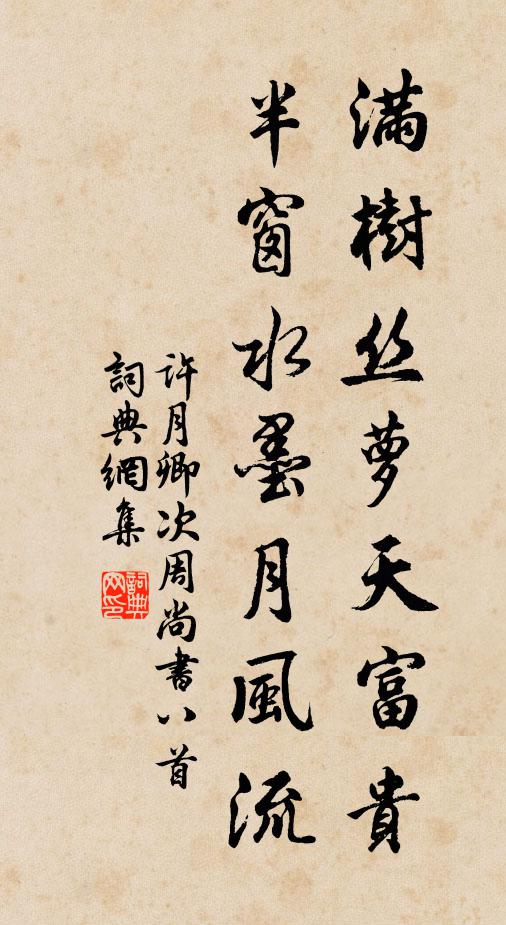 滿樹丝萝天富貴
半窗水墨月風流
許月卿次周尚書八首
詞典網集
詞典网印